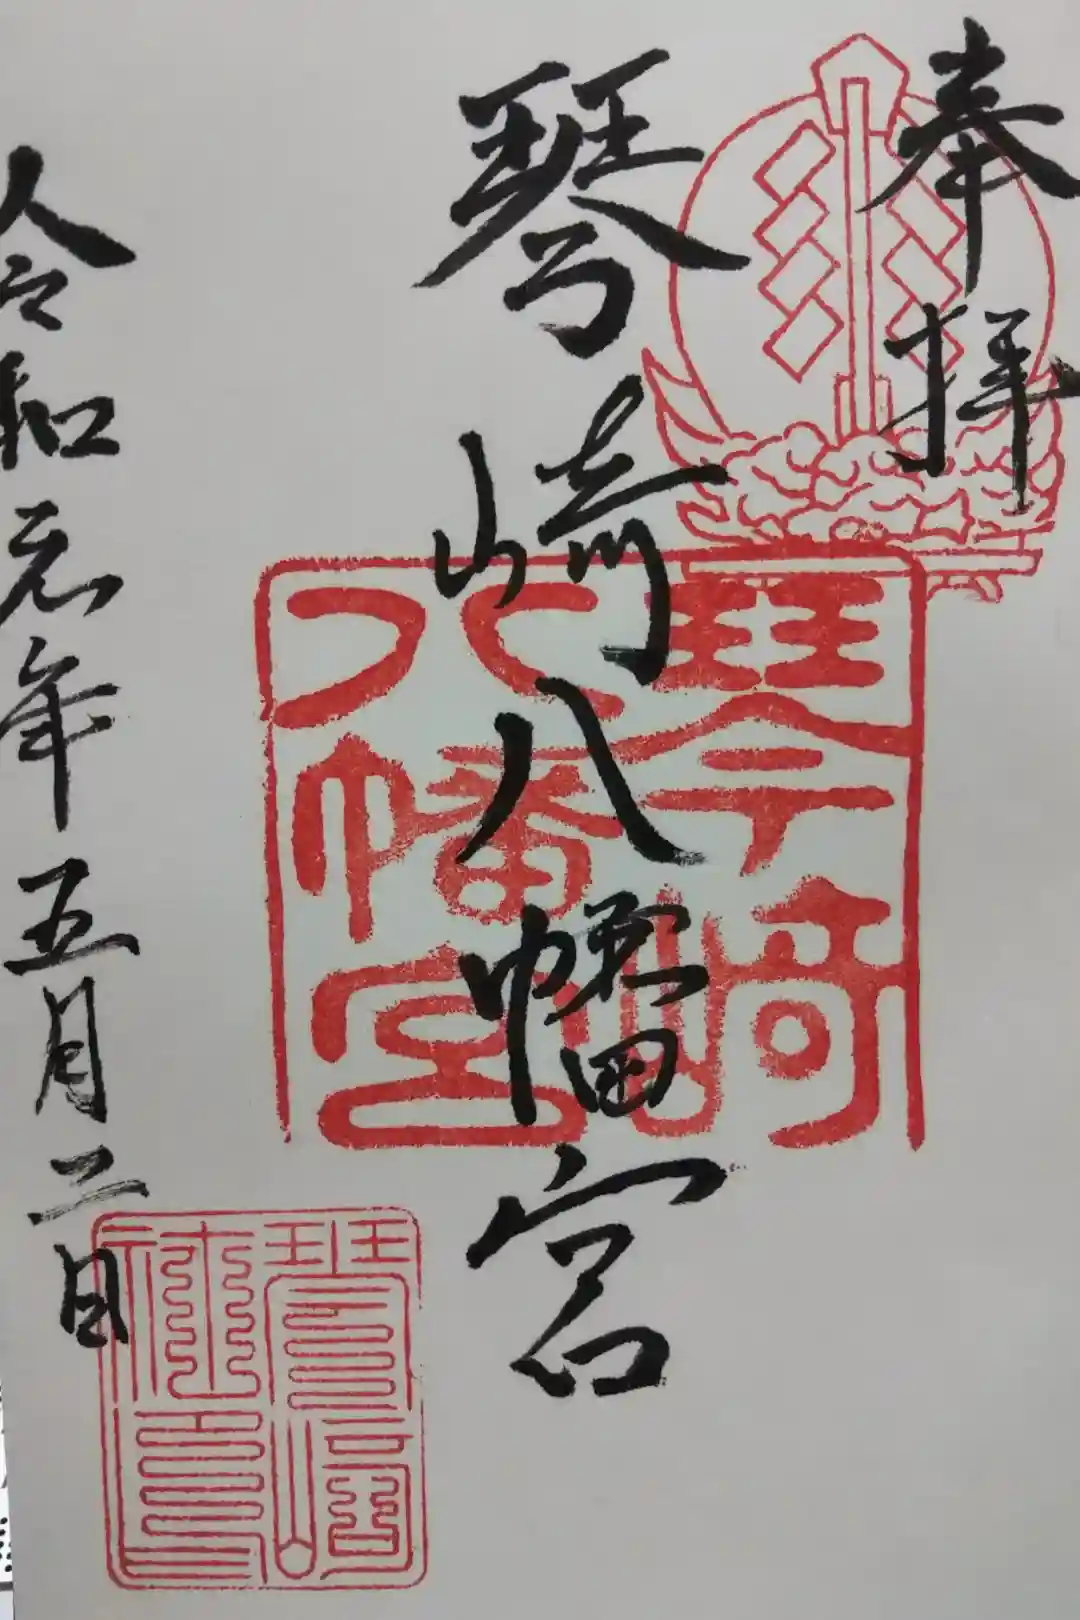 奉拝
琴崎八幡宮
令和元年五月二日
琴崎
八幡宮